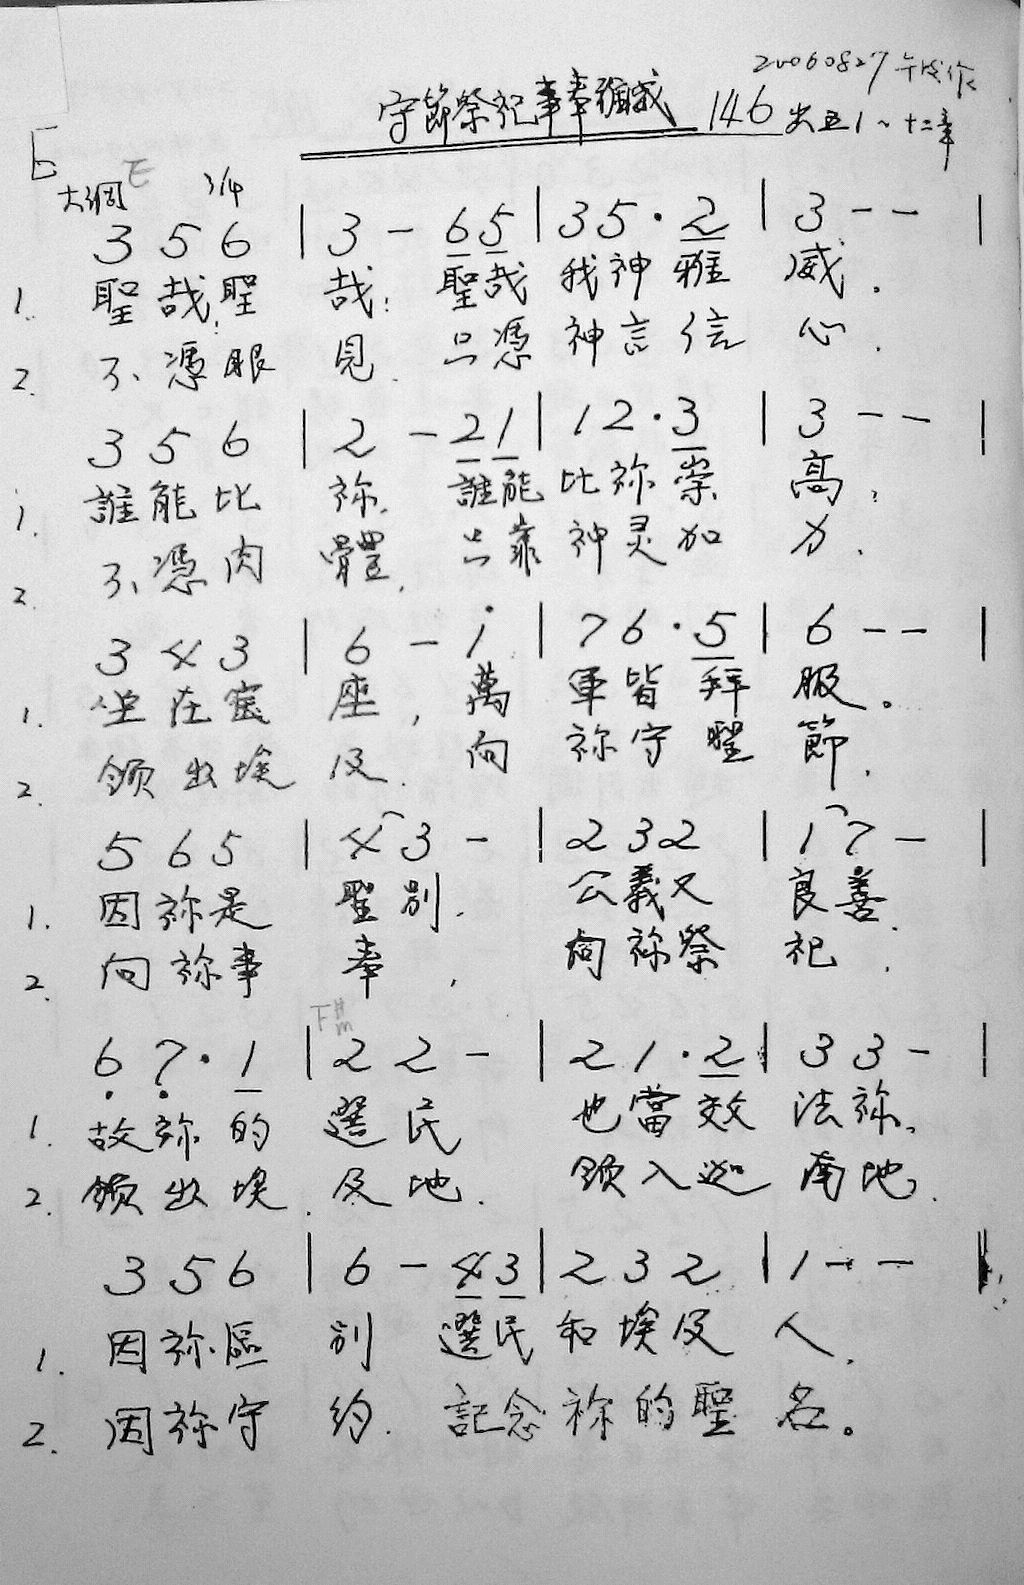 20060827 午後作
守節祭祀事奉權威 146 出五1~十二章
E
大綱 E 3/4
3 5 6 | 3 - 6 5 | 3 5 · 2 | 3 - - |
1. 聖哉!聖哉!聖哉我神雅威.
2. 不憑眼見.只憑神言信心.
3 5 6 | 2 - 2 1 | 1 2 · 3 | 3 - - |
1. 誰能比祢.誰能比祢崇高,
2. 不憑肉體.只靠神灵加力.
3 4 3 | 6 - i | 7 6 · 5 | 6 - - |
1. 坐在寳座,萬軍皆拜服。
2. 領出埃及.向祢守聖節.
5 6 5 | 4 3 - | 2 3 2 | 1 7 - |
1. 因祢是聖別.公義又良善.
2. 向祢事奉,向祢祭祀.
6̣ 7̣ · 1 | F#m 2 2 - | 2 1 · 2 | 3 3 - |
1. 故祢的選民也當效法祢.
2. 領出埃及地.領入迦南地.
3 5 6 | 6 - 4 3 | 2 3 2 | 1 - - |
1. 因祢區別選民和埃及人.
2. 因祢守約.記念祢的聖名。